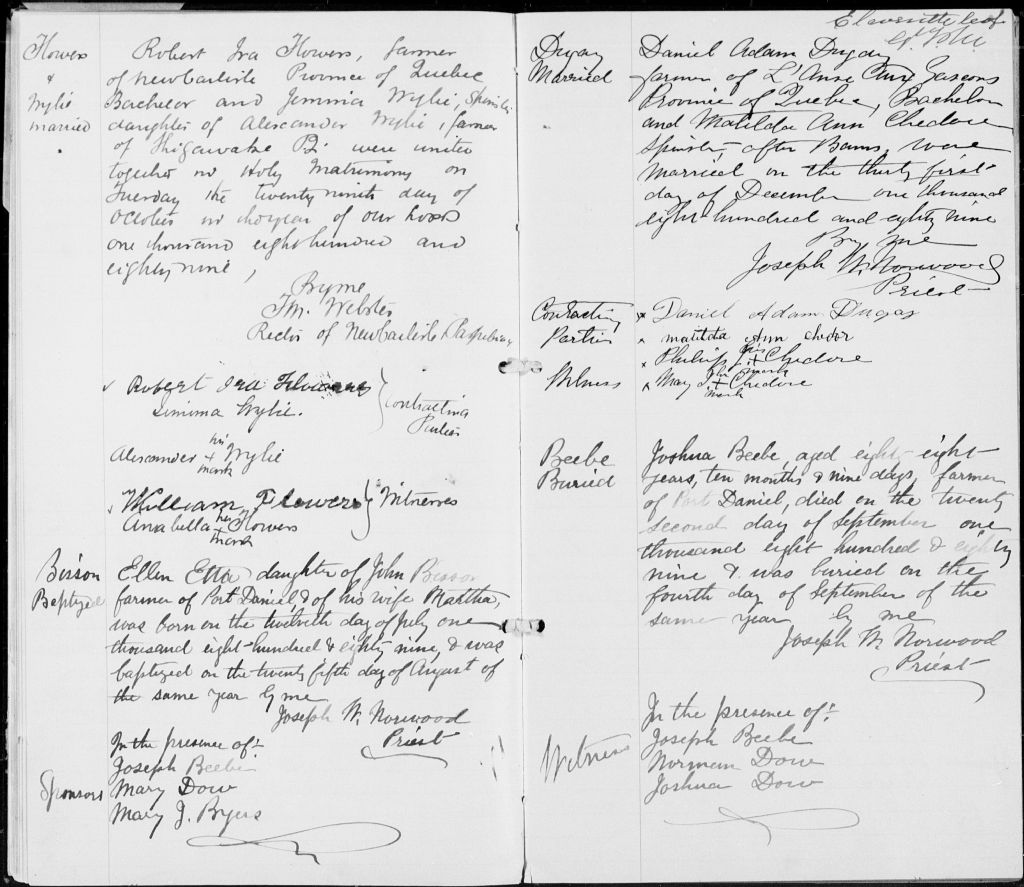 Flowers
&
Wylie
married
Robert Ira Flowers, farmer
of New Carlisle Province of Quebec
Bachelor and Jemima Wylie, Spinster
daughter of Alexander Wylie, farmer
of Shigawake P.Q. were united
together in Holy Matrimony on
Tuesday the twenty ninth day of
October in the year of our Lord
one thousand eight hundred and
eighty nine,
By me
Webster
Rector of New Carlisle & Paspebiac
Robert Ira Flowers
Jemima Wylie.
Contracting
Parties
Alexander his + mark Wylie
William Flowers
Anabella her + mark Flowers
Witnesses
Bisson
Baptized
Ellen Etta daughter of John Bisson
farmer of Port Daniel & of his wife Martha,
was born on the twelvth day of July one
thousand eight hundred & eighty nine, & was
baptized on the twenty fifth day of August of
the same year by me
Joseph W. Norwood
Priest
In the presence of:-
Joseph Beebe
Sponsors
Mary Dow
Mary J. Byers
Eleventh leaf
Dugay
Married
Daniel Adam Dugay
farmer of L'Anse Aux Gascons
Province of Quebec, Bachelor
and Matilda Ann Chedore
Spinster, after Banns, were
Married on the thirty first
day of December one thousand
eight hundred and eighty nine
By me
Joseph W. Norwood
Priest
Contracting
Parties
x Daniel Adam Dugas
x matilda Ann chedor
x Philip his + mark Chedore
Witness
x May her + mark Chedore
Beebe
Buried
Joshua Beebe aged eighty eight
years, ten months & nine days, farmer
of Port Daniel, died on the twenty
second day of September one
thousand eight hundred & eighty
nine & was buried on the
fourth day of September of the
same year by me
Joseph W. Norwood
Priest
In the presence of:-
Witness
Joseph Beebe
Norman Dow
Joshua Dow